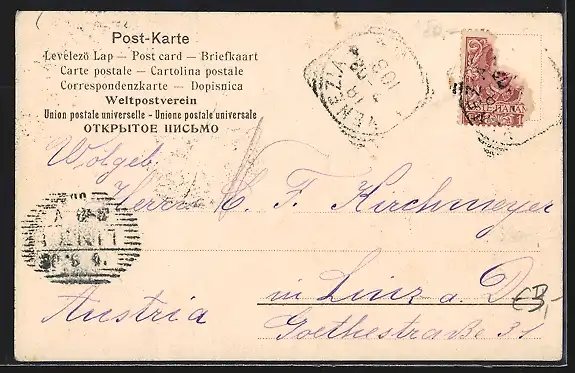 Post-Karte
Levelező Lap — Post card — Briefkaart
Carte postale — Cartolina postale
Correspondenzkarte — Dopisnica
Weltpostverein
Union postale universelle - Unione postale universale
ОТКРЫТОЕ ПИСЬМО
VENEZIA
Wolgeb.
Herrn C. F. Kirchmeyer
in Linz a. D.
Goethestraße 31
Austria